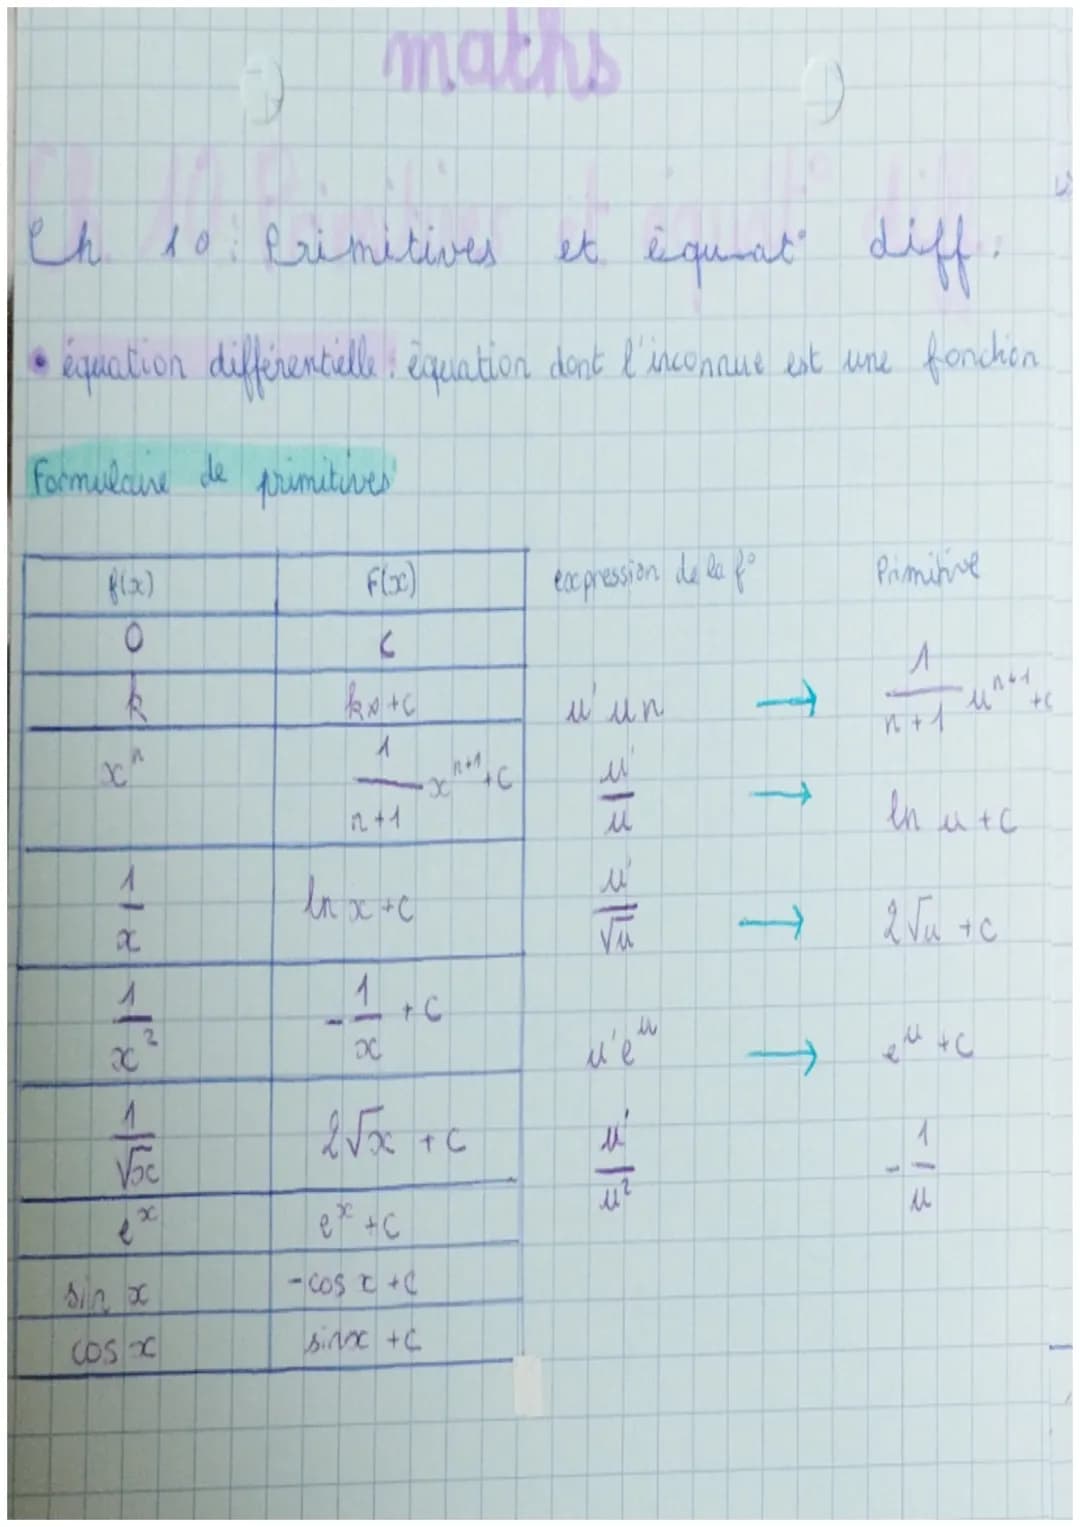 maths
Ch 10 : Primitives et équat° diff :
• équation différentielle : équation dont l'inconnue est une fonction
Formulaire de primitives
f(x) F(x)
0 C
k kx+C
xⁿ 1/(n+1) xⁿ⁺¹+C
1/x ln x+C
1/x² -1/x + C
1/√x 2√x + C
eˣ eˣ+C
sin x -cos x +C
cos x sinx +C
expression de la f° Primitive
u' un → 1/(n+1) uⁿ⁺¹+C
u'/u → ln u+C
u'/√u → 2√u +C
u'eᵘ → eᵘ+C
u'/u² -1/u